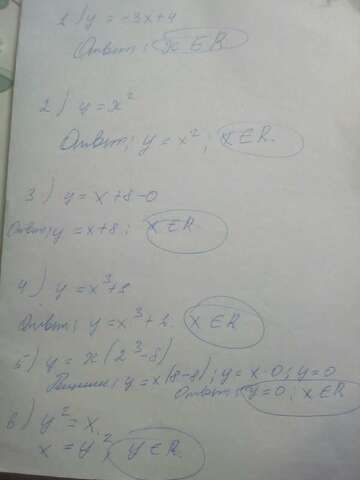 1) y = -3x+4
Ответ: x ∈ R
2) y = x²
Ответ: y = x²; x ∈ R.
3) y = x+8-0
Ответ: y = x+8; x ∈ R.
4) y = x³+1
Ответ: y = x³+1. x ∈ R
5) y = x(2³-8)
Решение: y = x(8-8); y = x·0; y = 0
Ответ: y = 0; x ∈ R
6) y² = x,
x = y², y ∈ R.